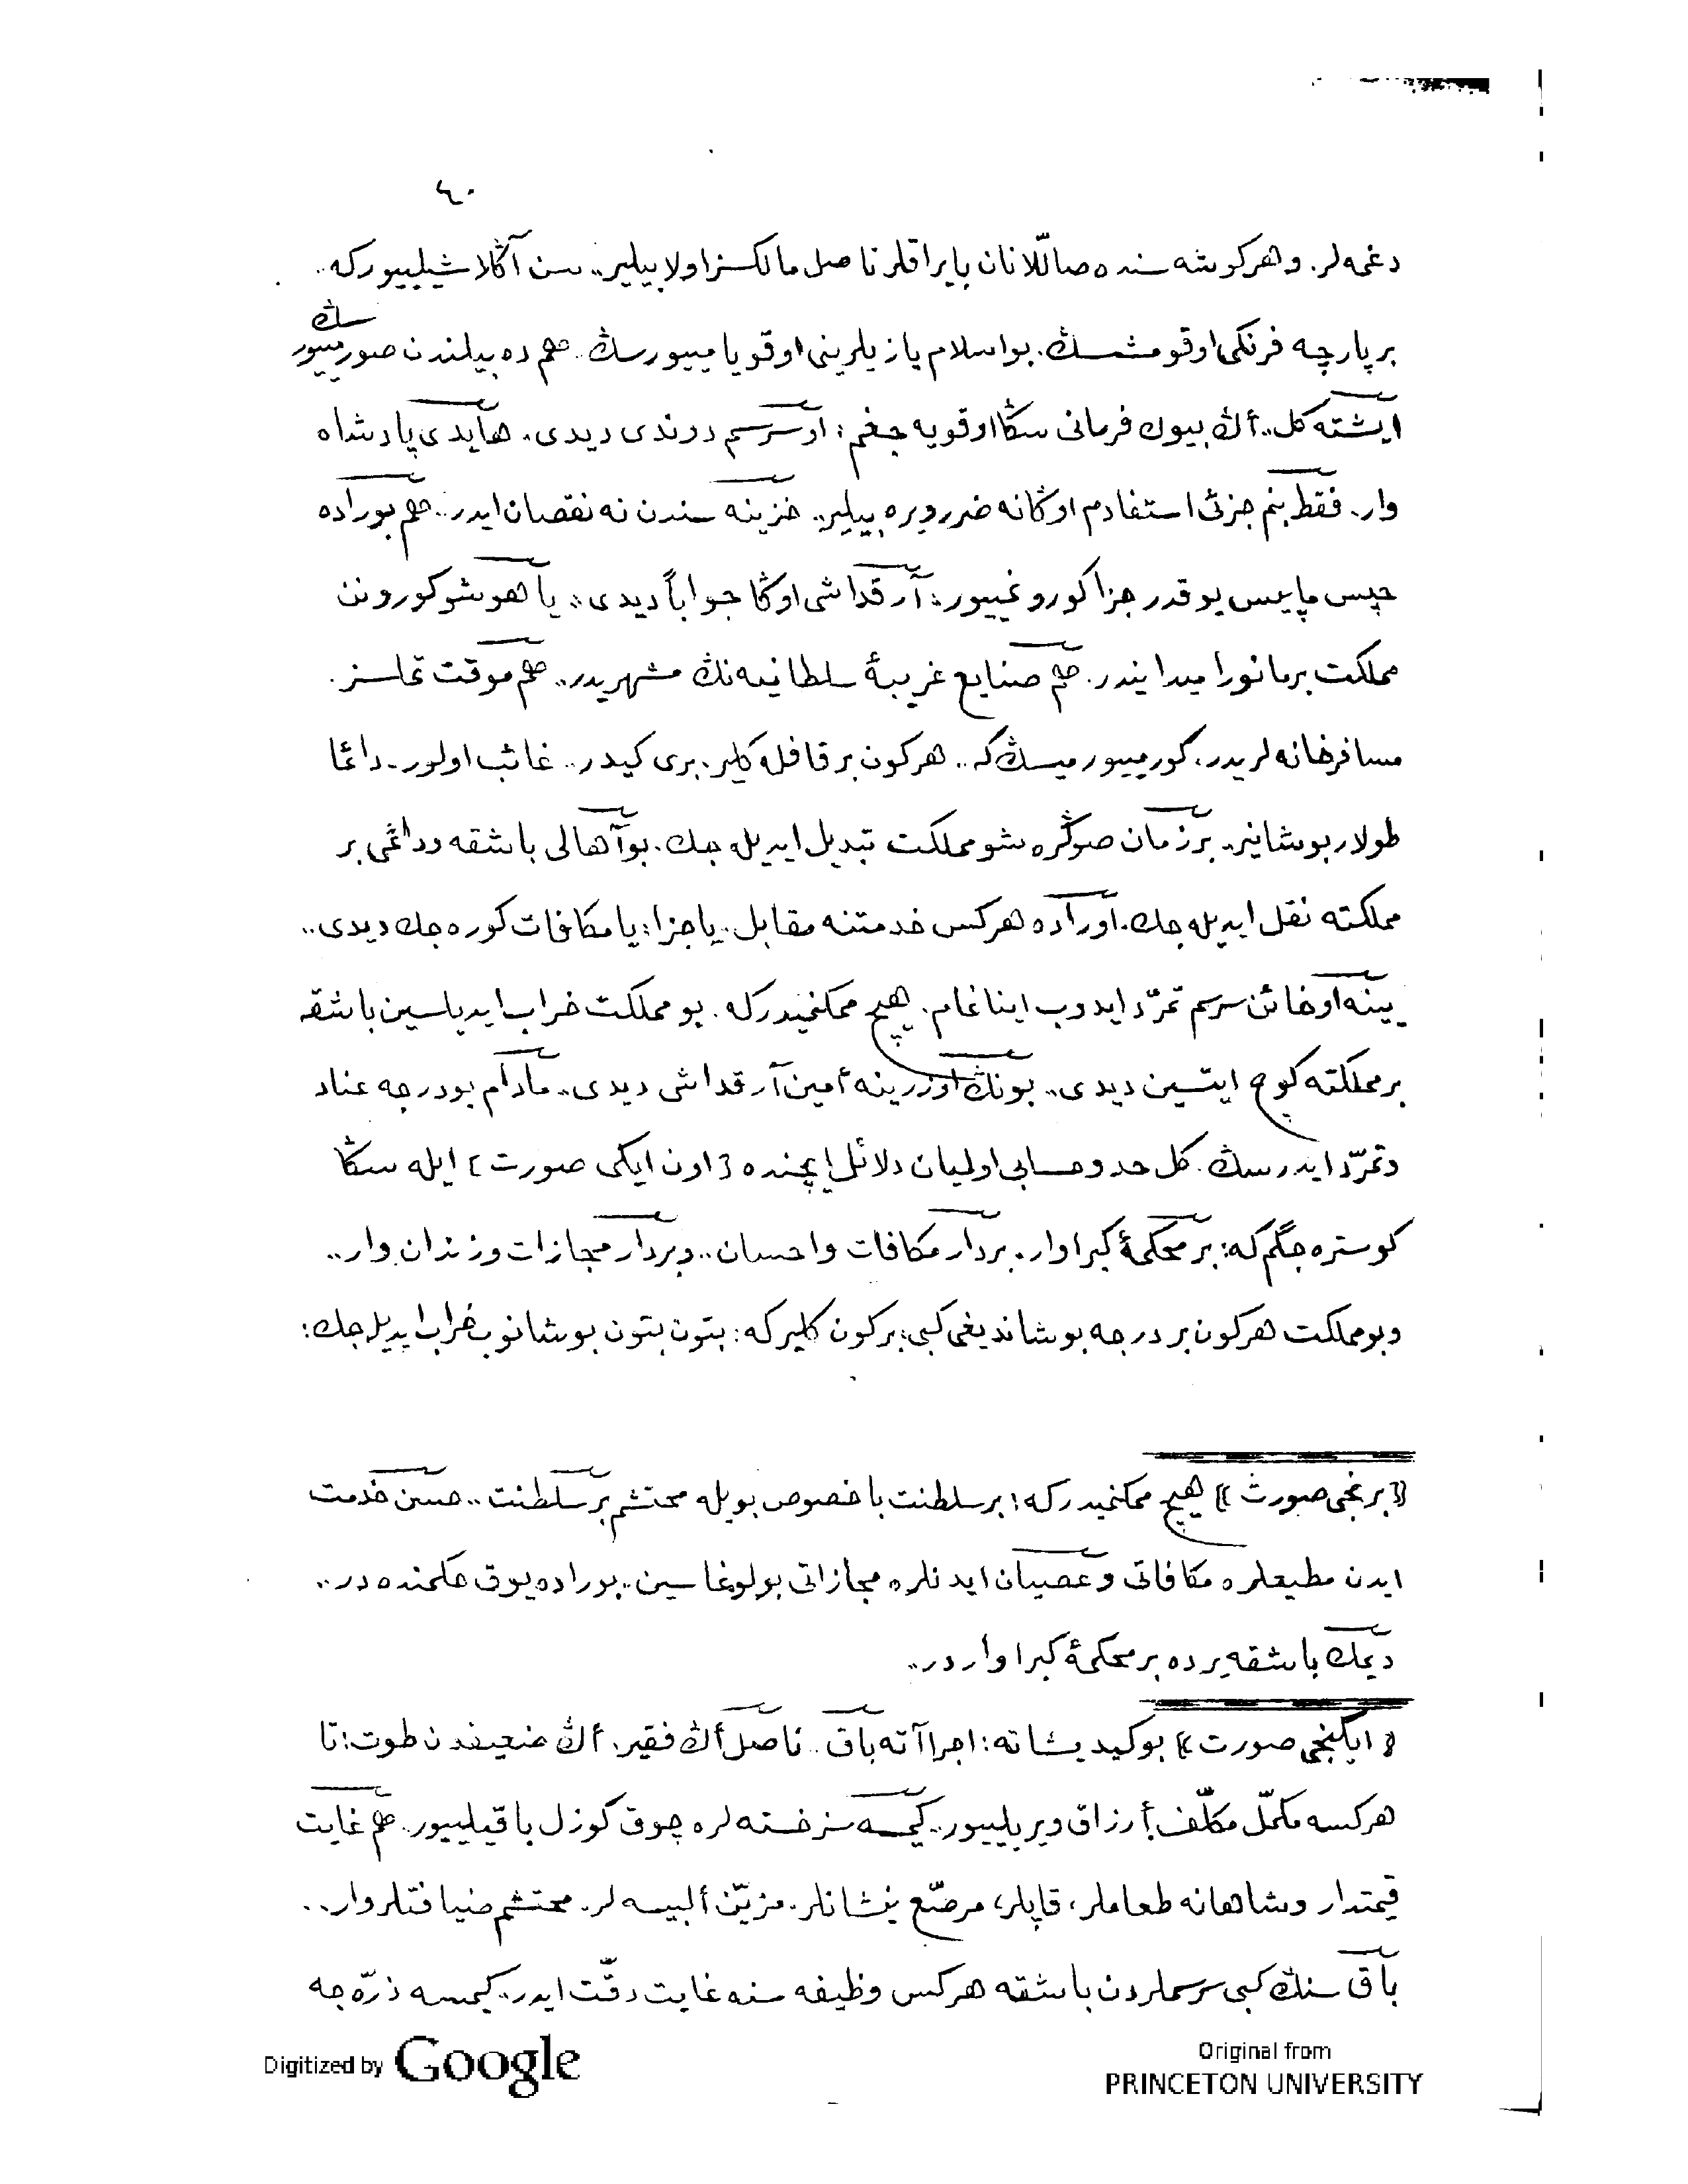 ٤٠
دغمه‌لر. و هر كوشه‌سنده صاللّانان بايراقلر ناصل مالكسز اولابيلير.. سن آڭلاشيليیور كه..
بر پارچه فرنكی اوقومشسڭ. بو اسلام يازيلرينی اوقويامييورسڭ.. هم ده بيلندن صورمييورسڭ
ايشته كل.. أڭ بيوك فرمانی سڭا اوقويه‌جغم: او سرسم دوندی ديدی. هايدی پادشاه
وار. فقط بنم جزئی استفادم اوڭا نه ضرر ويره‌بيلير.. خزينه‌سندن نه نقصان ايدر.. هم بوراده
حپس ماپس يوقدر جزا كورونمييور: آرقداشی اوڭا جواباً ديدی: ياهو شو كورونن
مملكت بر مانورا ميدانيدر. هم صنايع غريبۀ سلطانيه‌نڭ مشهريدر.. هم موقت تملسز.
مسافرخانه‌لريدر. كورمييورميسڭ كه.. هر كون بر قافله كلير. بری كيدر.. غائب اولور. دائما
طولار بوشانير. بر زمان صوڭره شو مملكت تبديل ايديله‌جك. بو آهالی باشقه و دائمی بر
مملكته نقل ايديله‌جك. اوراده هركس خدمتنه مقابل. يا جزا: يا مكافات كوره‌جك ديدی..
يينه او خائن سرسم تمرّد ايدوب اينانمام. هيچ ممكنميدر كه. بو مملكت خراب ايديلسين باشقه
بر مملكته كوچ ايتسين ديدی.. بونڭ اوزرينه أمين آرقداشی ديدی. مادام بو درجه عناد
و تمرّد ايدرسڭ. كل حد و حسابی اولميان دلائل ايچنده [اون ايكی صورت] ايله سڭا
كوستره‌جگم كه: بر محكمۀ كبرا وار. بر دار مكافات و احسان.. و بر دار مجازات و زندان وار..
و بو مملكت هر كون بر درجه بوشانديغی كبی: بر كون كلير كه: بتون بتون بوشانوب خراب ايديله‌جك:
﴿برنجی صورت﴾ هيچ ممكنميدر كه: بر سلطنت باخصوص بويله محتشم بر سلطنت.. حسن خدمت
ايدن مطيعلره مكافاتی و عصيان ايدنلره مجازاتی بولونماسين. بوراده يوق حكمنده‌در..
ديمك باشقه يرده بر محكمۀ كبرا واردر..
﴿ايكنجی صورت﴾ بو كيديشاته: اجراآته باق.. ناصل أڭ فقير. أڭ ضعيفدن طوت: تا
هركسه مكمّل مكلّف أرزاق ويريلييور.. كيمسه‌سز خسته‌لره چوق كوزل باقيلييور. هم غايت
قيمتدار و شاهانه طعاملر، قاپلر، مرصّع نشانلر. مزيّن ألبيسه‌لر. محتشم ضيافتلر وار..
باق سنڭ كبی سرسملردن باشقه هركس وظيفه‌سنه غايت دقّت ايدر. كيمسه ذرّه‌جه
Digitized by Google
Original from
PRINCETON UNIVERSITY